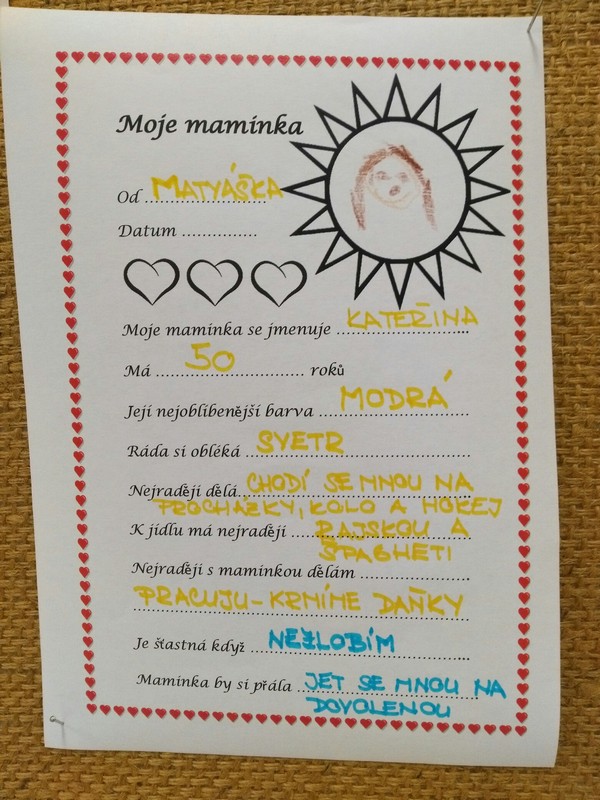 Moje maminka
Od ........ MATYÁŠKA
Datum ...............
Moje maminka se jmenuje KATEŘINA
Má ........ 50 ........ roků
Její nejoblíbenější barva ..... MODRÁ
Ráda si obléká ..... SVETR
Nejraději dělá CHODÍ SE MNOU NA
PROCHÁZKY, KOLO A HOKEJ
K jídlu má nejraději ..... RAJSKOU A
ŠPAGHETI
Nejraději s maminkou dělám ...............
PRACUJU - KRMÍME DAŇKY
Je šťastná když ..... NEZLOBÍM
Maminka by si přála JET SE MNOU NA
DOVOLENOU